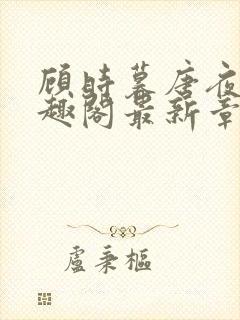 顾时暮唐夜
趣阁最新章
盧秉樞